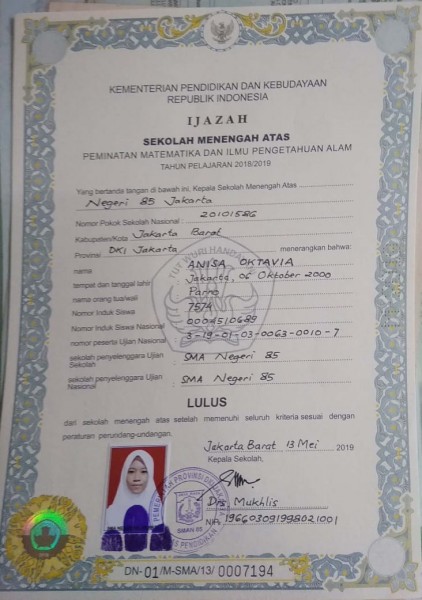 KEMENTERIAN PENDIDIKAN DAN KEBUDAYAAN
REPUBLIK INDONESIA
IJAZAH
SEKOLAH MENENGAH ATAS
PEMINATAN MATEMATIKA DAN ILMU PENGETAHUAN ALAM
TAHUN PELAJARAN 2018/2019
Yang bertanda tangan di bawah ini, Kepala Sekolah Menengah Atas
Negeri 85 Jakarta
Nomor Pokok Sekolah Nasional : 20101586
Kabupaten/Kota Jakarta Barat
Provinsi DKI Jakarta menerangkan bahwa:
TUT WURI HANDAYANI
nama : ANISA OKTAVIA
tempat dan tanggal lahir : Jakarta, 06 Oktober 2000
nama orang tua/wali : Parno
Nomor Induk Siswa : 7574
Nomor Induk Siswa Nasional : 0004510689
nomor peserta Ujian Nasional : 3-19-01-03-0063-0010-7
sekolah penyelenggara Ujian Sekolah : SMA Negeri 85
sekolah penyelenggara Ujian Nasional : SMA Negeri 85
LULUS
dari sekolah menengah atas setelah memenuhi seluruh kriteria sesuai dengan
peraturan perundang-undangan.
Jakarta Barat 13 Mei 2019
Kepala Sekolah,
Drs Mukhlis
NIP. 196603091998021001
PEMERINTAH PROVINSI
DINAS PENDIDIKAN
SMAN 85
DN-01/M-SMA/13/0007194